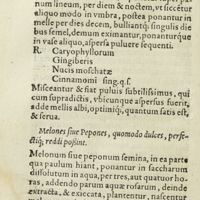 num lineum, per diem & noctem, vt siccetur
aliquo modo in vmbra, postea ponantur in
melle per dies decem, bulliantq́; singulis die
bus semel, demum eximantur, ponanturque
in vase aliquo, aspersa puluere sequenti.
R. Caryophyllorum
Gingiberis
Nucis moschatæ
Cinnamomi sing. q.s.
Misceantur & fiat puluis subtilissimus, qui
cum supradictis, vbicunque aspersus fuerit,
adde mellis albi, optimiq́; quantum satis est,
& serua.
Melones siue Pepones, quomodo dulces, perfe-
ctiq́; reddi possint.
Melonum siue peponum semina, in ea parte
qua paulum hiant, ponantur in saccharum
dissolutum in aqua, per tres, aut quatuor ho-
ras, addendo parum aquæ rosarum, deinde
extracta, & exiccata, plantentur, nascentur